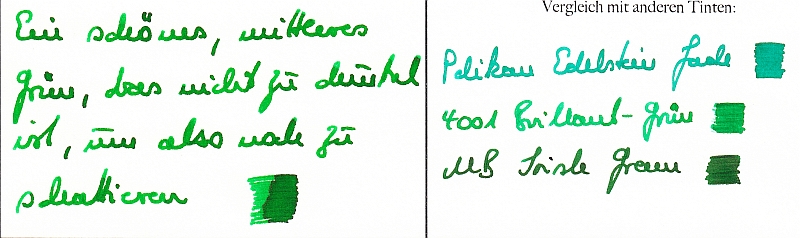 Ein schönes, mittleres
grün, das nicht zu dunkel
ist, um also noch zu
schattieren
Vergleich mit anderen Tinten:
Pelikan Edelstein Jade
4001 Brillant-Grün
MB Irish Green